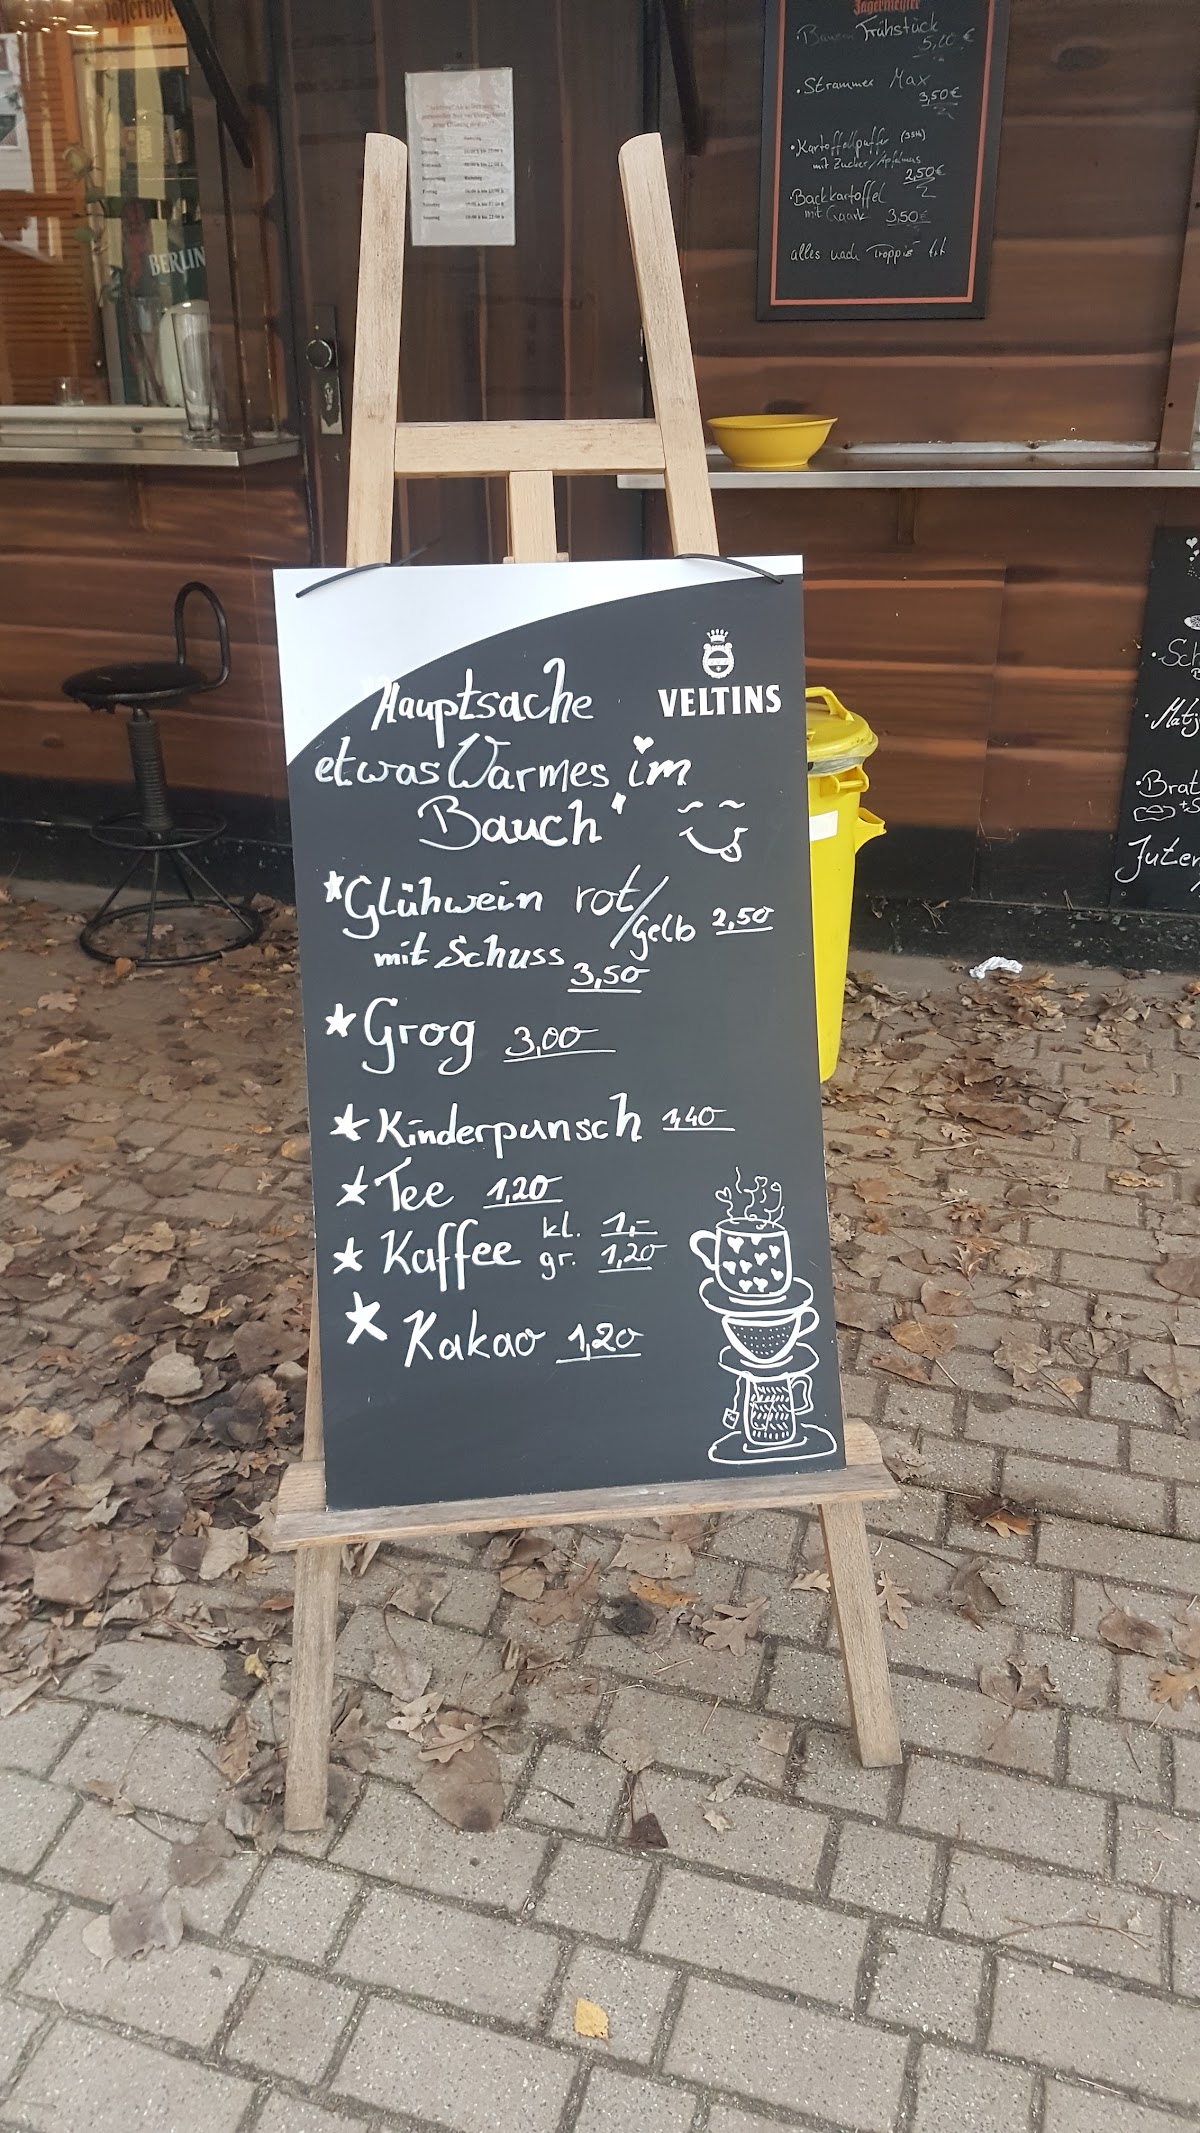 Jägermeister
• Bauern Frühstück
5,00 €
• Strammer Max
3,50€
• Kartoffelpuffer (3Stk)
mit Zucker/Apfelmus
2,50€
Backkartoffel
mit Quark 3,50€
alles nach Art
BERLIN
VELTINS
"Hauptsache
etwas Warmes im
Bauch"
*Glühwein rot/gelb 2,50
mit Schuss 3,50
*Grog 3,00
*Kinderpunsch 1,40
*Tee 1,20
*Kaffee kl. 1,-
gr. 1,20
*Kakao 1,20
• Sch
• Matj
• Brat